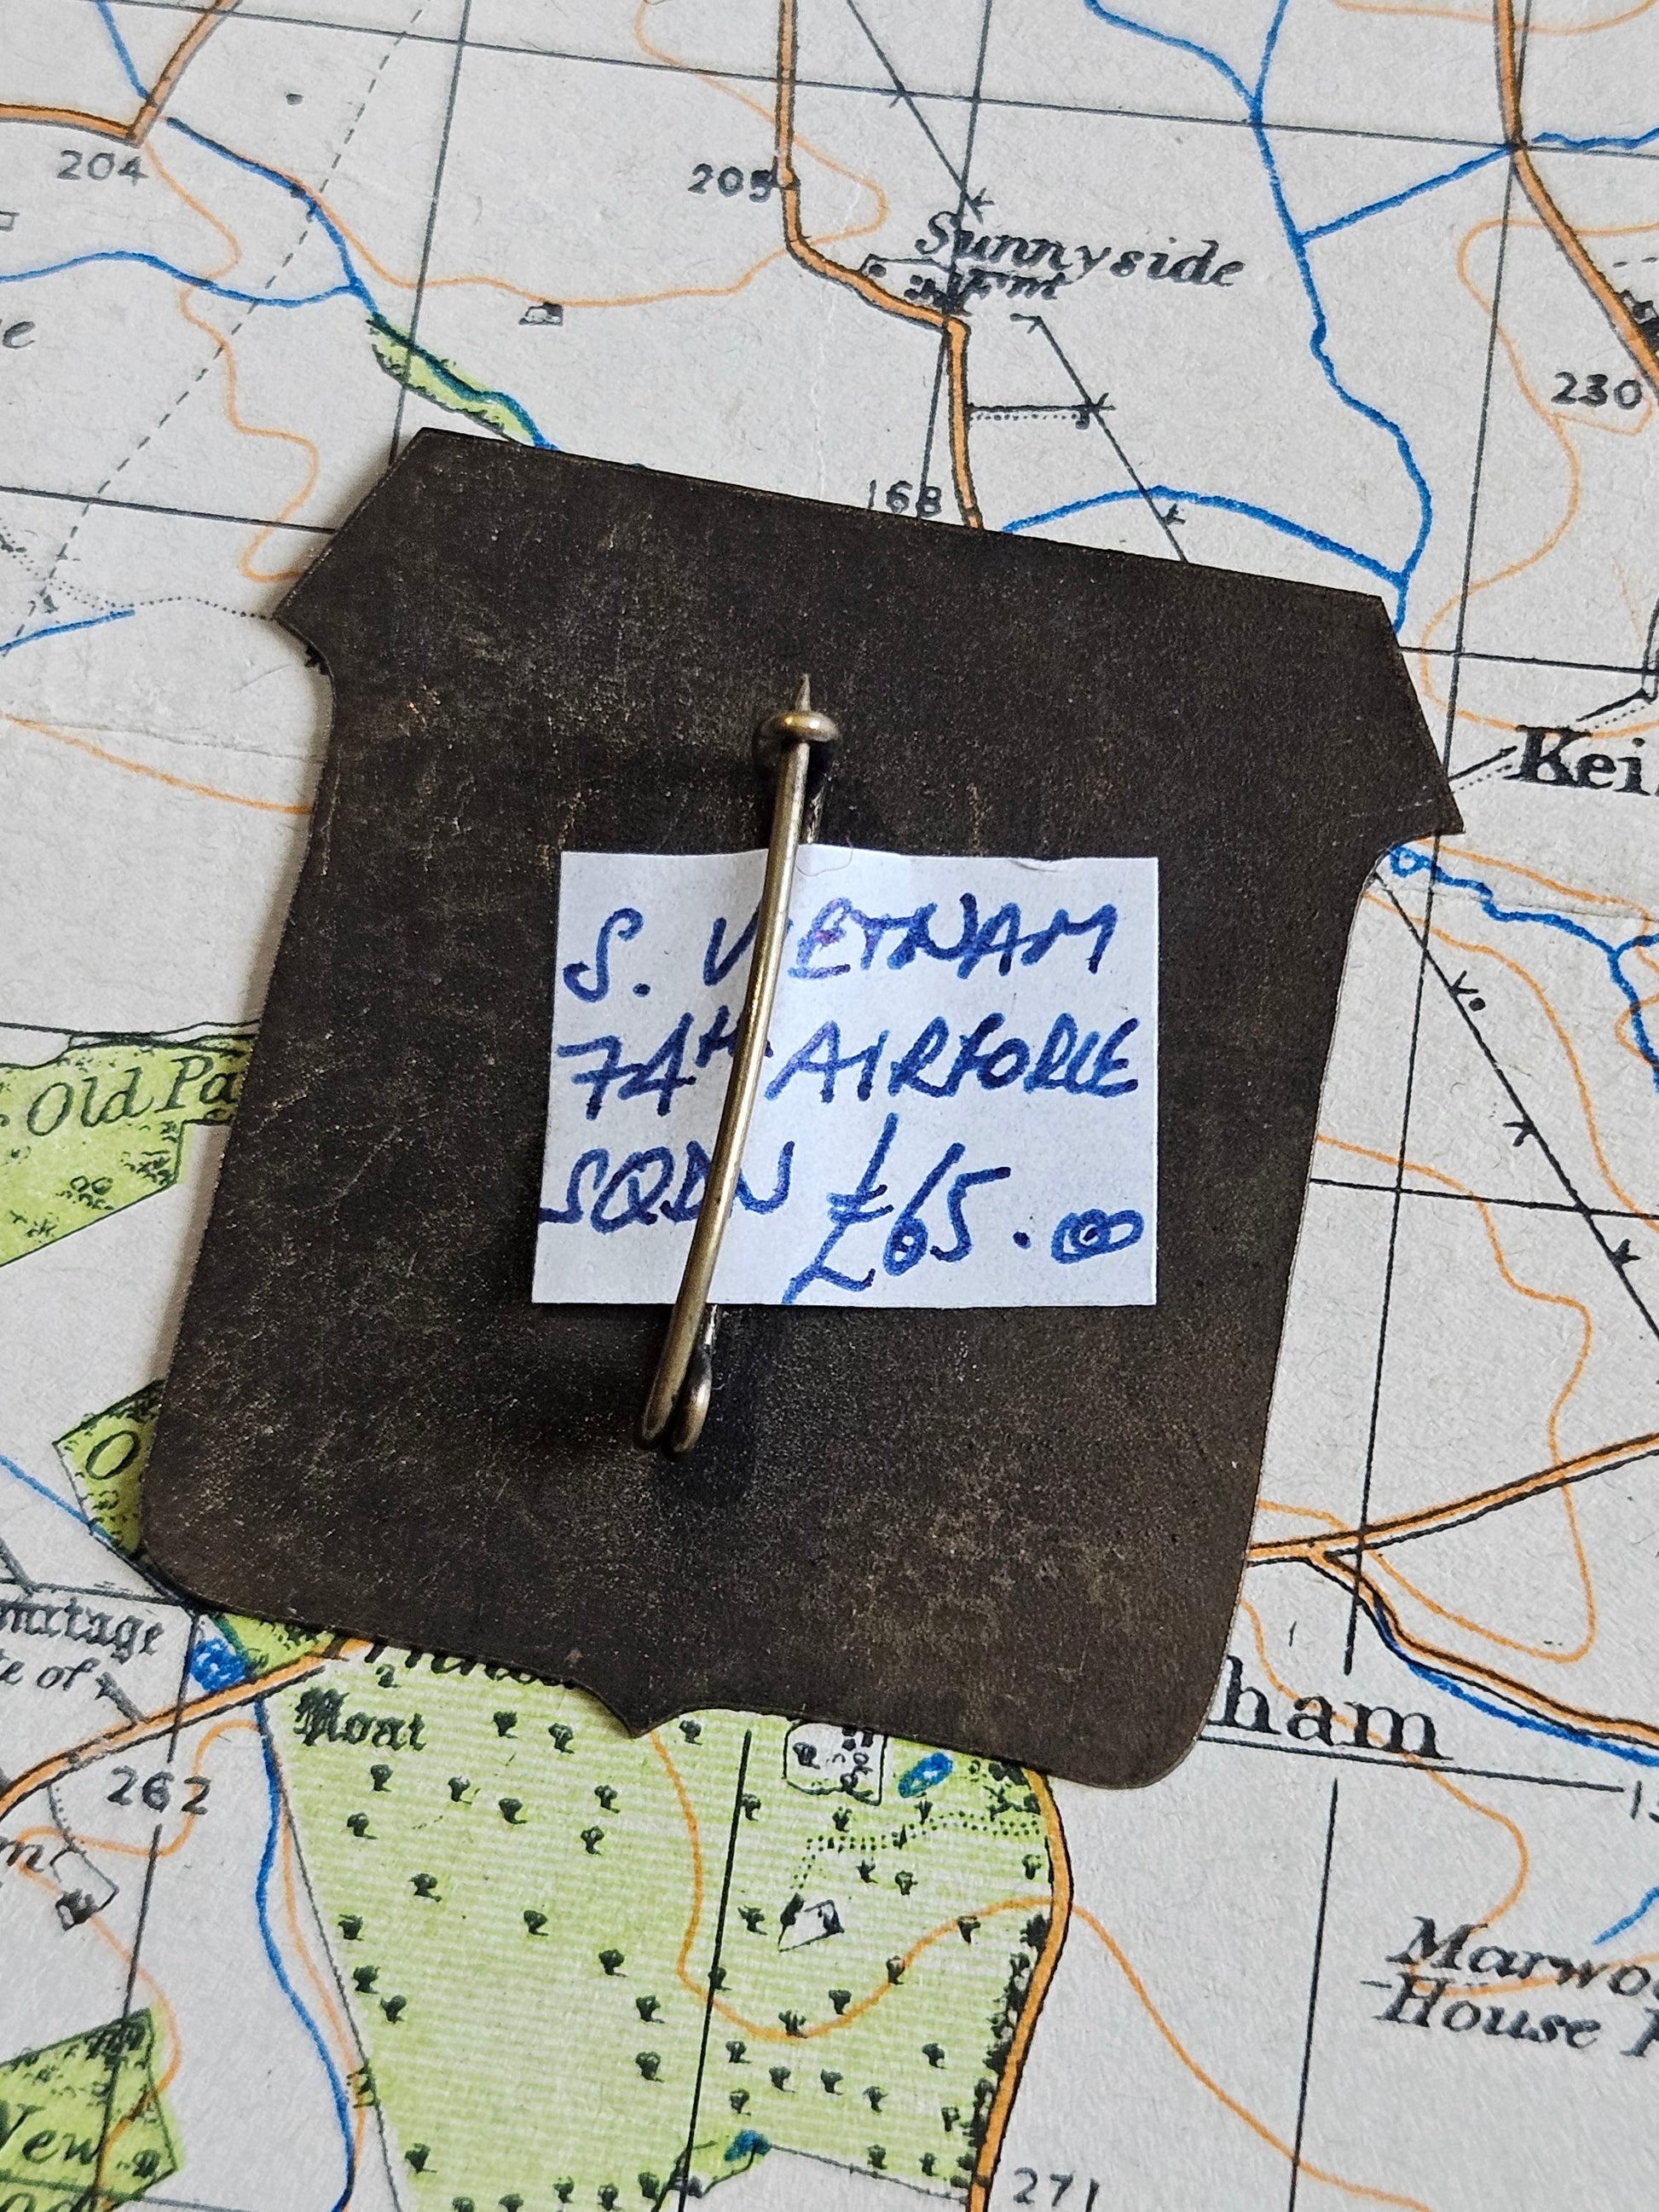 204
205
Sunnyside
Fm
230
168
Kei
S. VIETNAM
74th AIRFORCE
SQDN £65.00
Old Pa
O
mitage
te of
Moat
ham
262
Marwo
House F
New
271